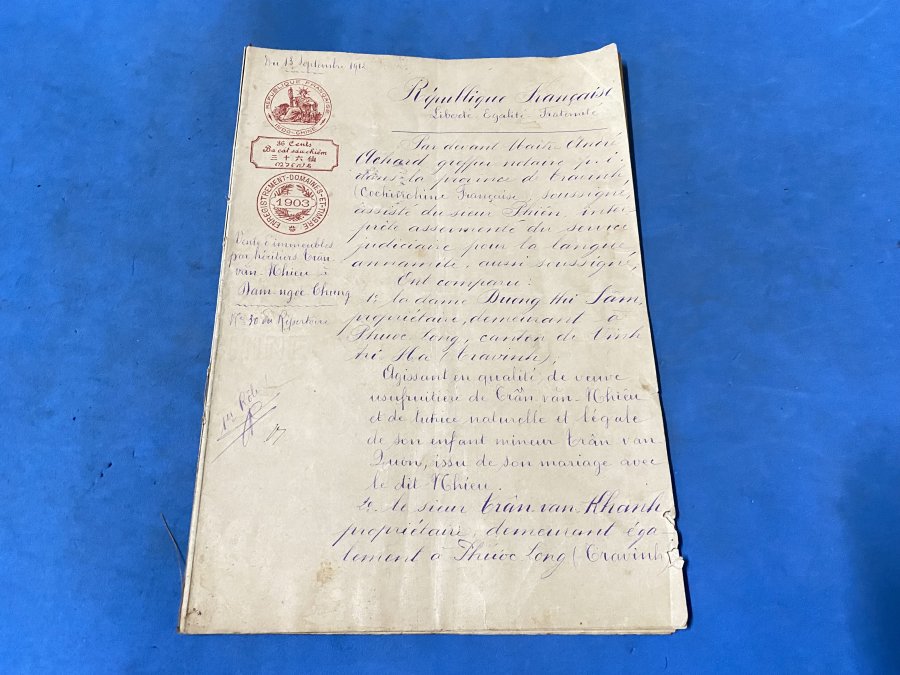 Du 13 Septembre 1912
RÉPUBLIQUE FRANÇAISE
INDO-CHINE
36 Cents
Ba cắt sáu chiêm
三十六仙
ENREGISTREMENT-DOMAINES-ET-TIMBRE
1903
Vente d'immeubles
par héritiers Trân-
van-Nhiêu à
Dam-ngoc Chung
No 30 du Répertoire
1er Rôle
République Française
Liberté-Egalité-Fraternité
Par devant Maître André
Achard greffier notaire p. i.
dans la province de Travinh
(Cochinchine Française), soussigné,
assisté du sieur Thiên, inter-
prète assermenté du service
judiciaire pour la langue
annamite, aussi soussigné,
Ont comparu:
1o la dame Duong thi Sâm,
propriétaire, demeurant à
Phuoc Long, canton de Binh
tri Ha (Travinh),
Agissant en qualité de veuve
usufruitière de Trân-van-Nhiêu
et de tutrice naturelle et légale
de son enfant mineur Trân van
Quon, issu de son mariage avec
le dit Nhiêu.
2o le sieur Trân-van-Khanh
propriétaire, demeurant éga-
lement à Phuoc Long (Travinh)